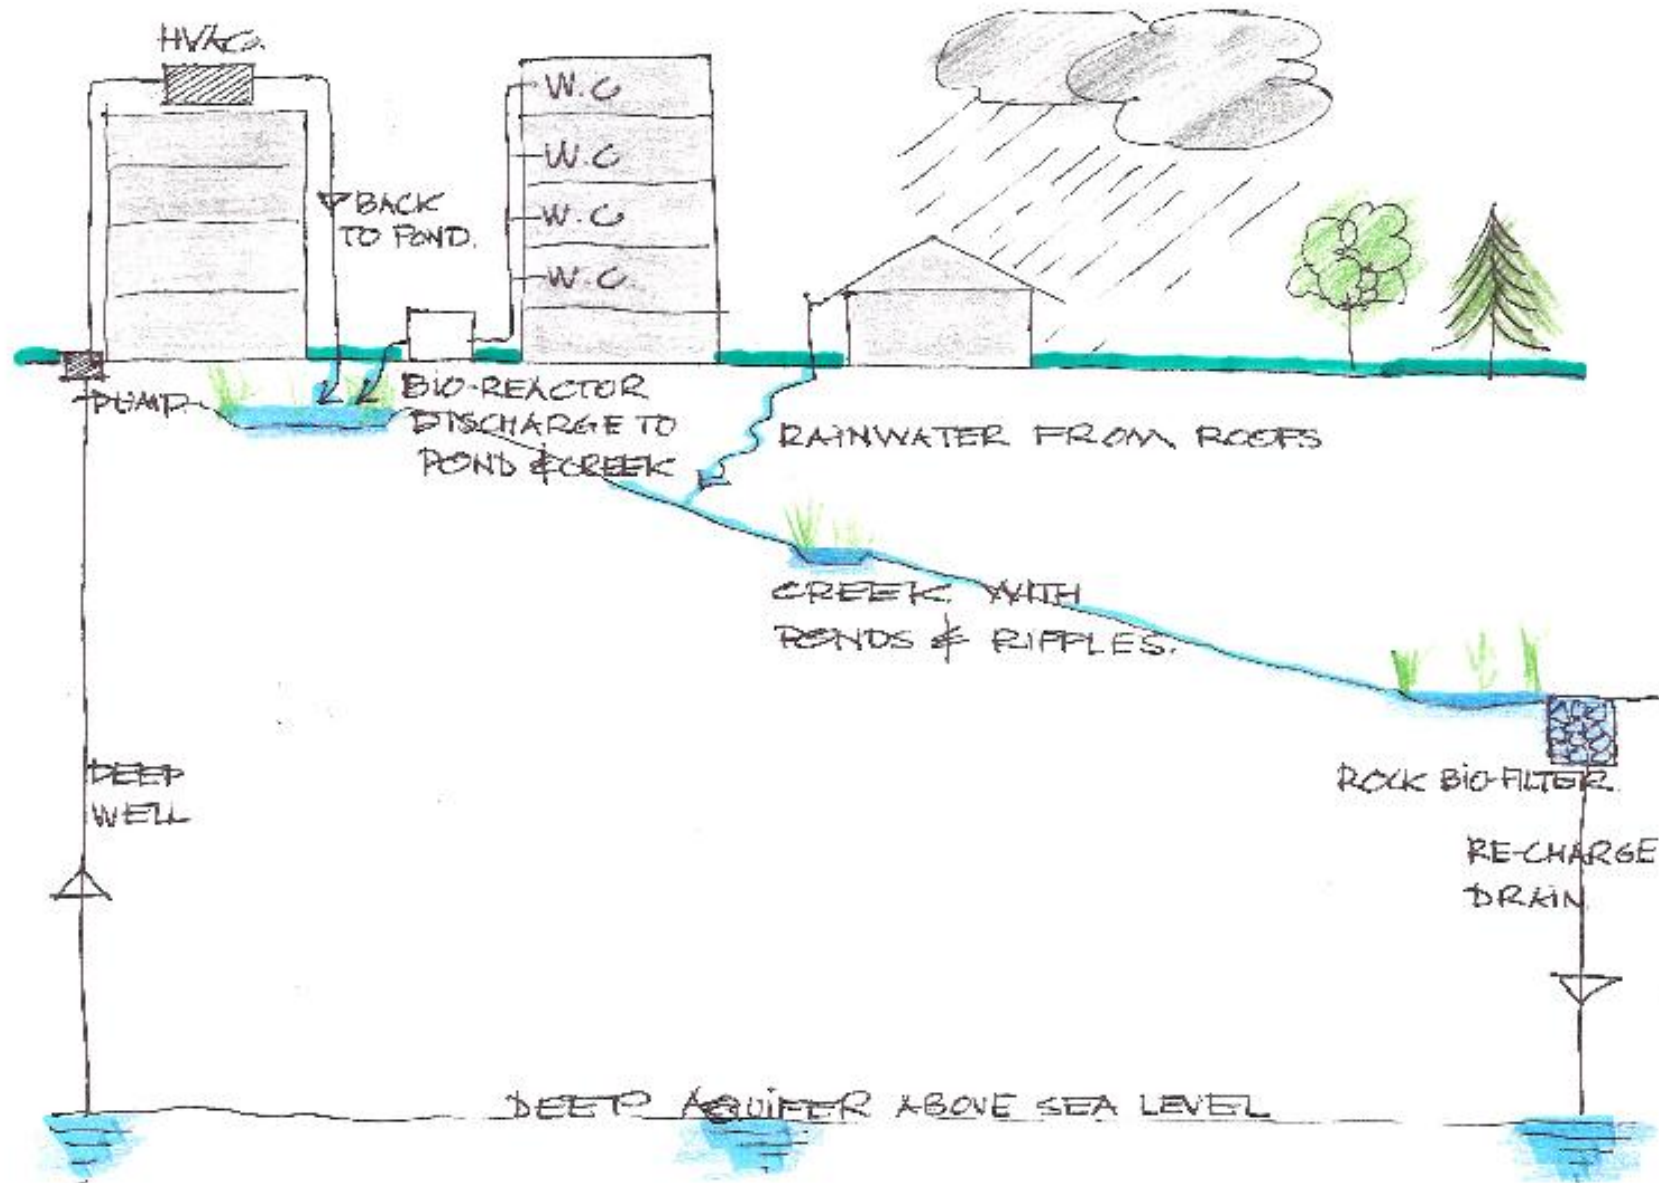 HVAC.
W.C
W.C
W.C
W.C.
BACK
TO POND.
PUMP
BIO-REACTOR
DISCHARGE TO
POND & CREEK
RAINWATER FROM ROOFS
CREEK WITH
PONDS & RIFFLES.
ROCK BIO-FILTER.
DEEP
WELL
RE-CHARGE
DRAIN
DEEP AQUIFER ABOVE SEA LEVEL